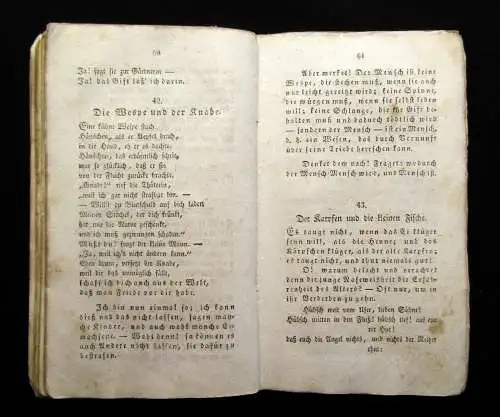 60
Ja! sagt sie zur Gärtnerin —
Ja! das Gift laß' ich darin.
42.
Die Wespe und der Knabe.
Eine kühne Wespe stach
Hänschen, als er Aepfel brach,
in die Hand, eh er es dachte.
Hänschen, das erbärmlich schrie,
war so glücklich, daß er sie
von der Flucht zurücke brachte.
„Gnade!“ rief die Thäterin,
„weil ich gar nicht strafbar bin. —
— Willst du Blutschuld auf dich laden?
Meinen Stachel, der dich kränkt,
hat mir die Natur geschenkt,
und ich muß gezwungen schaden.“
Mußt du? fragt der kleine Mann. —
„Ja, weil ich's nicht ändern kann.“
Eben darum, versetzt der Knabe,
weil dir das unmöglich fällt,
schaff ich dich auch aus der Welt,
daß man Friede vor dir habe.
Ich bin nun einmal so; ich kann
dieß und das nicht lassen, sagen man-
che Kinder, und auch wohl manche Er-
wachsene. — Wohl denn! so können es
auch Andere nicht lassen, sie dafür zu
bestrafen.
61
Aber merkts! Der Mensch ist keine
Wespe, die stechen muß, wenn sie auch
nur leicht gereitzt wird; keine Spinne,
die würgen muß, wenn sie selbst leben
will; keine Schlange, die ihr Gift be-
halten muß und dadurch tödtlich wird
— sondern der Mensch — ist ein Mensch,
d. h. ein Wesen, das durch Vernunft
über seine Triebe herrschen kann.
Denket dem nach! Fraget: wodurch
der Mensch Mensch wird, und Mensch ist.
43.
Der Karpfen und die kleinen Fische.
Es taugt nicht, wenn das Ei klüger
seyn will, als die Henne; und das
Kärpfchen klüger, als der alte Karpfe;
es taugt nicht, und thut niemals gut!
O! warum belacht und verachtet
denn die junge Naseweisheit die Erfah-
renheit des Alters? — Oft nur, um in
ihr Verderben zu gehn.
Hübsch weit vom Ufer, lieben Söhne!
Hübsch mitten in dem Fluß! hübsch tief! auf eu-
rer Hut!
daß euch die Angel nichts, und nichts der Reiher
thut: